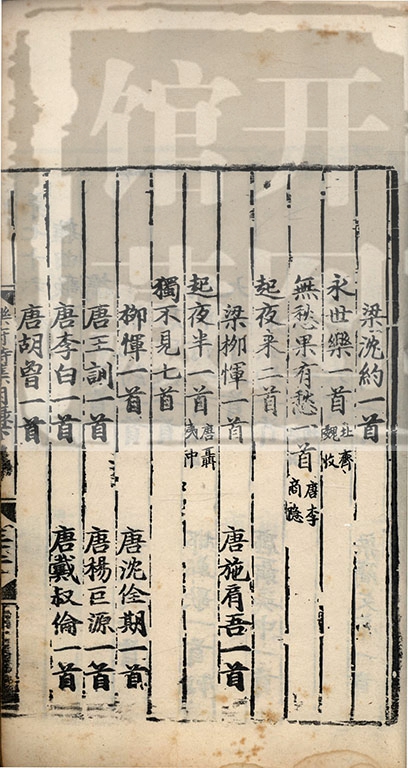 梁沈約一首
永世樂一首 北齊魏收
無愁果有愁一首 唐李商隱
起夜來二首
梁柳惲一首 唐施肩吾一首
起夜半一首 唐聶夷中
獨不見七首
柳惲一首 唐沈佺期一首
唐王訓一首 唐楊巨源一首
唐李白一首 唐戴叔倫一首
唐胡曾一首
樂府詩集目錄
开
馆